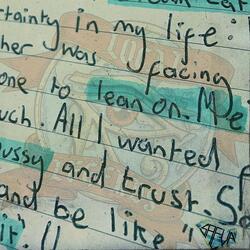 rtainty in my life:
her was facing
one to lean on. Me
uch. All I wanted f
ussy and trust. S
and be like "
it". (